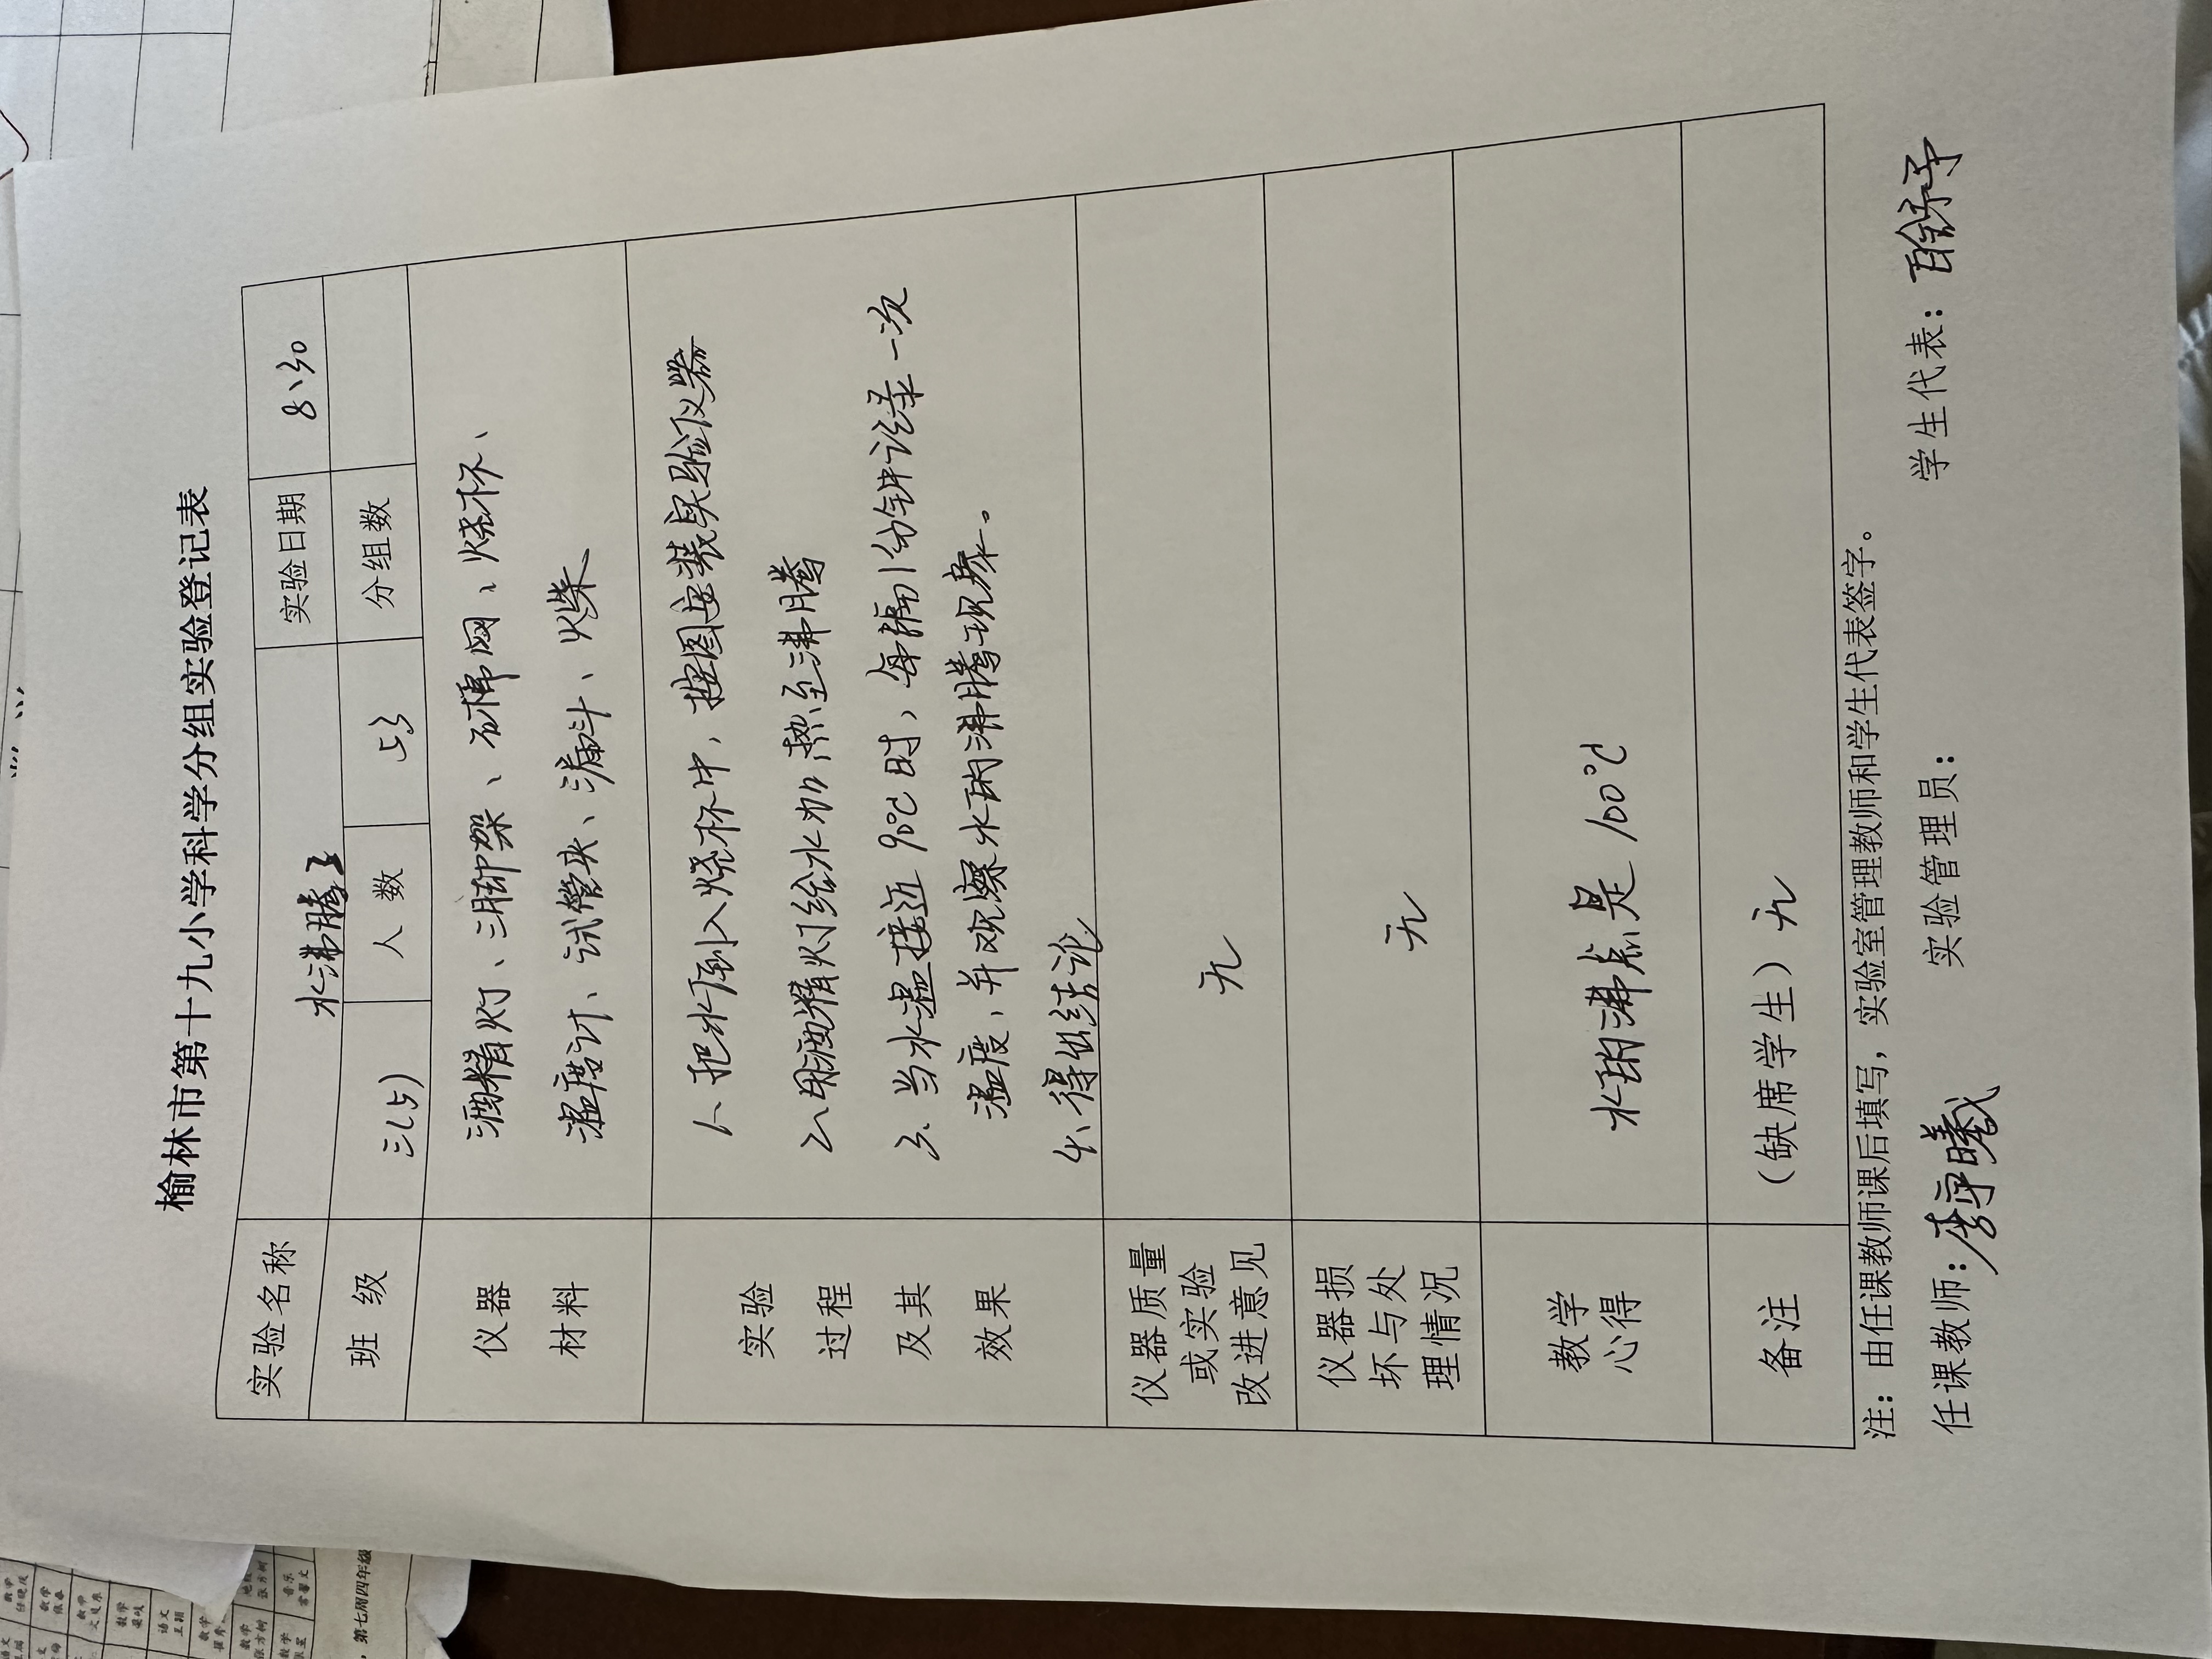 榆林市第十九小学科学分组实验登记表
实验名称 水沸腾了 实验日期 8、30
班 级 三(5) 人 数 53 分组数
仪器 材料
酒精灯、三脚架、石棉网、烧杯、
温度计、试管夹、漏斗、火柴
实验 过程 及其 效果
1、把水倒入烧杯中,按图安装实验仪器
2、用酒精灯给水加热至沸腾
3、当水温接近90℃时,每隔1分钟记录一次
温度,并观察水的沸腾现象。
4、得出结论
仪器质量
或实验 无
改进意见
仪器损
坏与处 无
理情况
教学
心得 水的沸点是100℃
备注 (缺席学生)无
注:由任课教师课后填写,实验室管理教师和学生代表签字。
任课教师: 实验管理员: 学生代表: